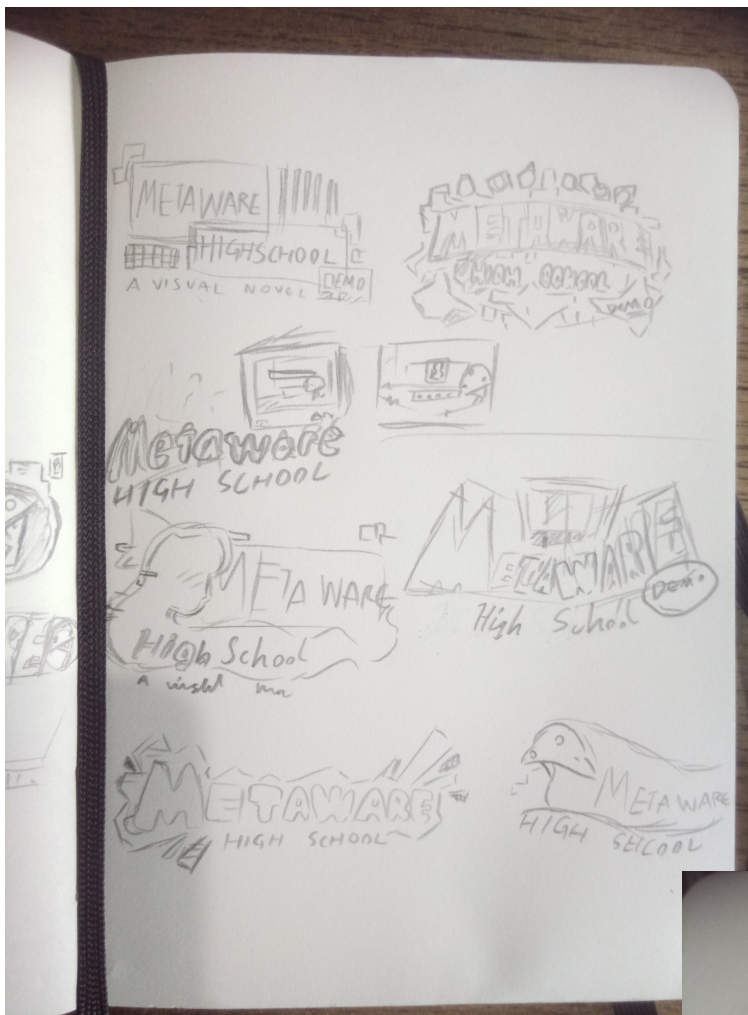 METAWARE
HIGHSCHOOL
DEMO
A VISUAL NOVEL
METAWARE
HIGH SCHOOL
DEMO
Metaware
HIGH SCHOOL
METAWARE
High School
DEMO
META WARE
High School
A
METAWARE
HIGH SCHOOL
META WARE
HIGH SEICOOL